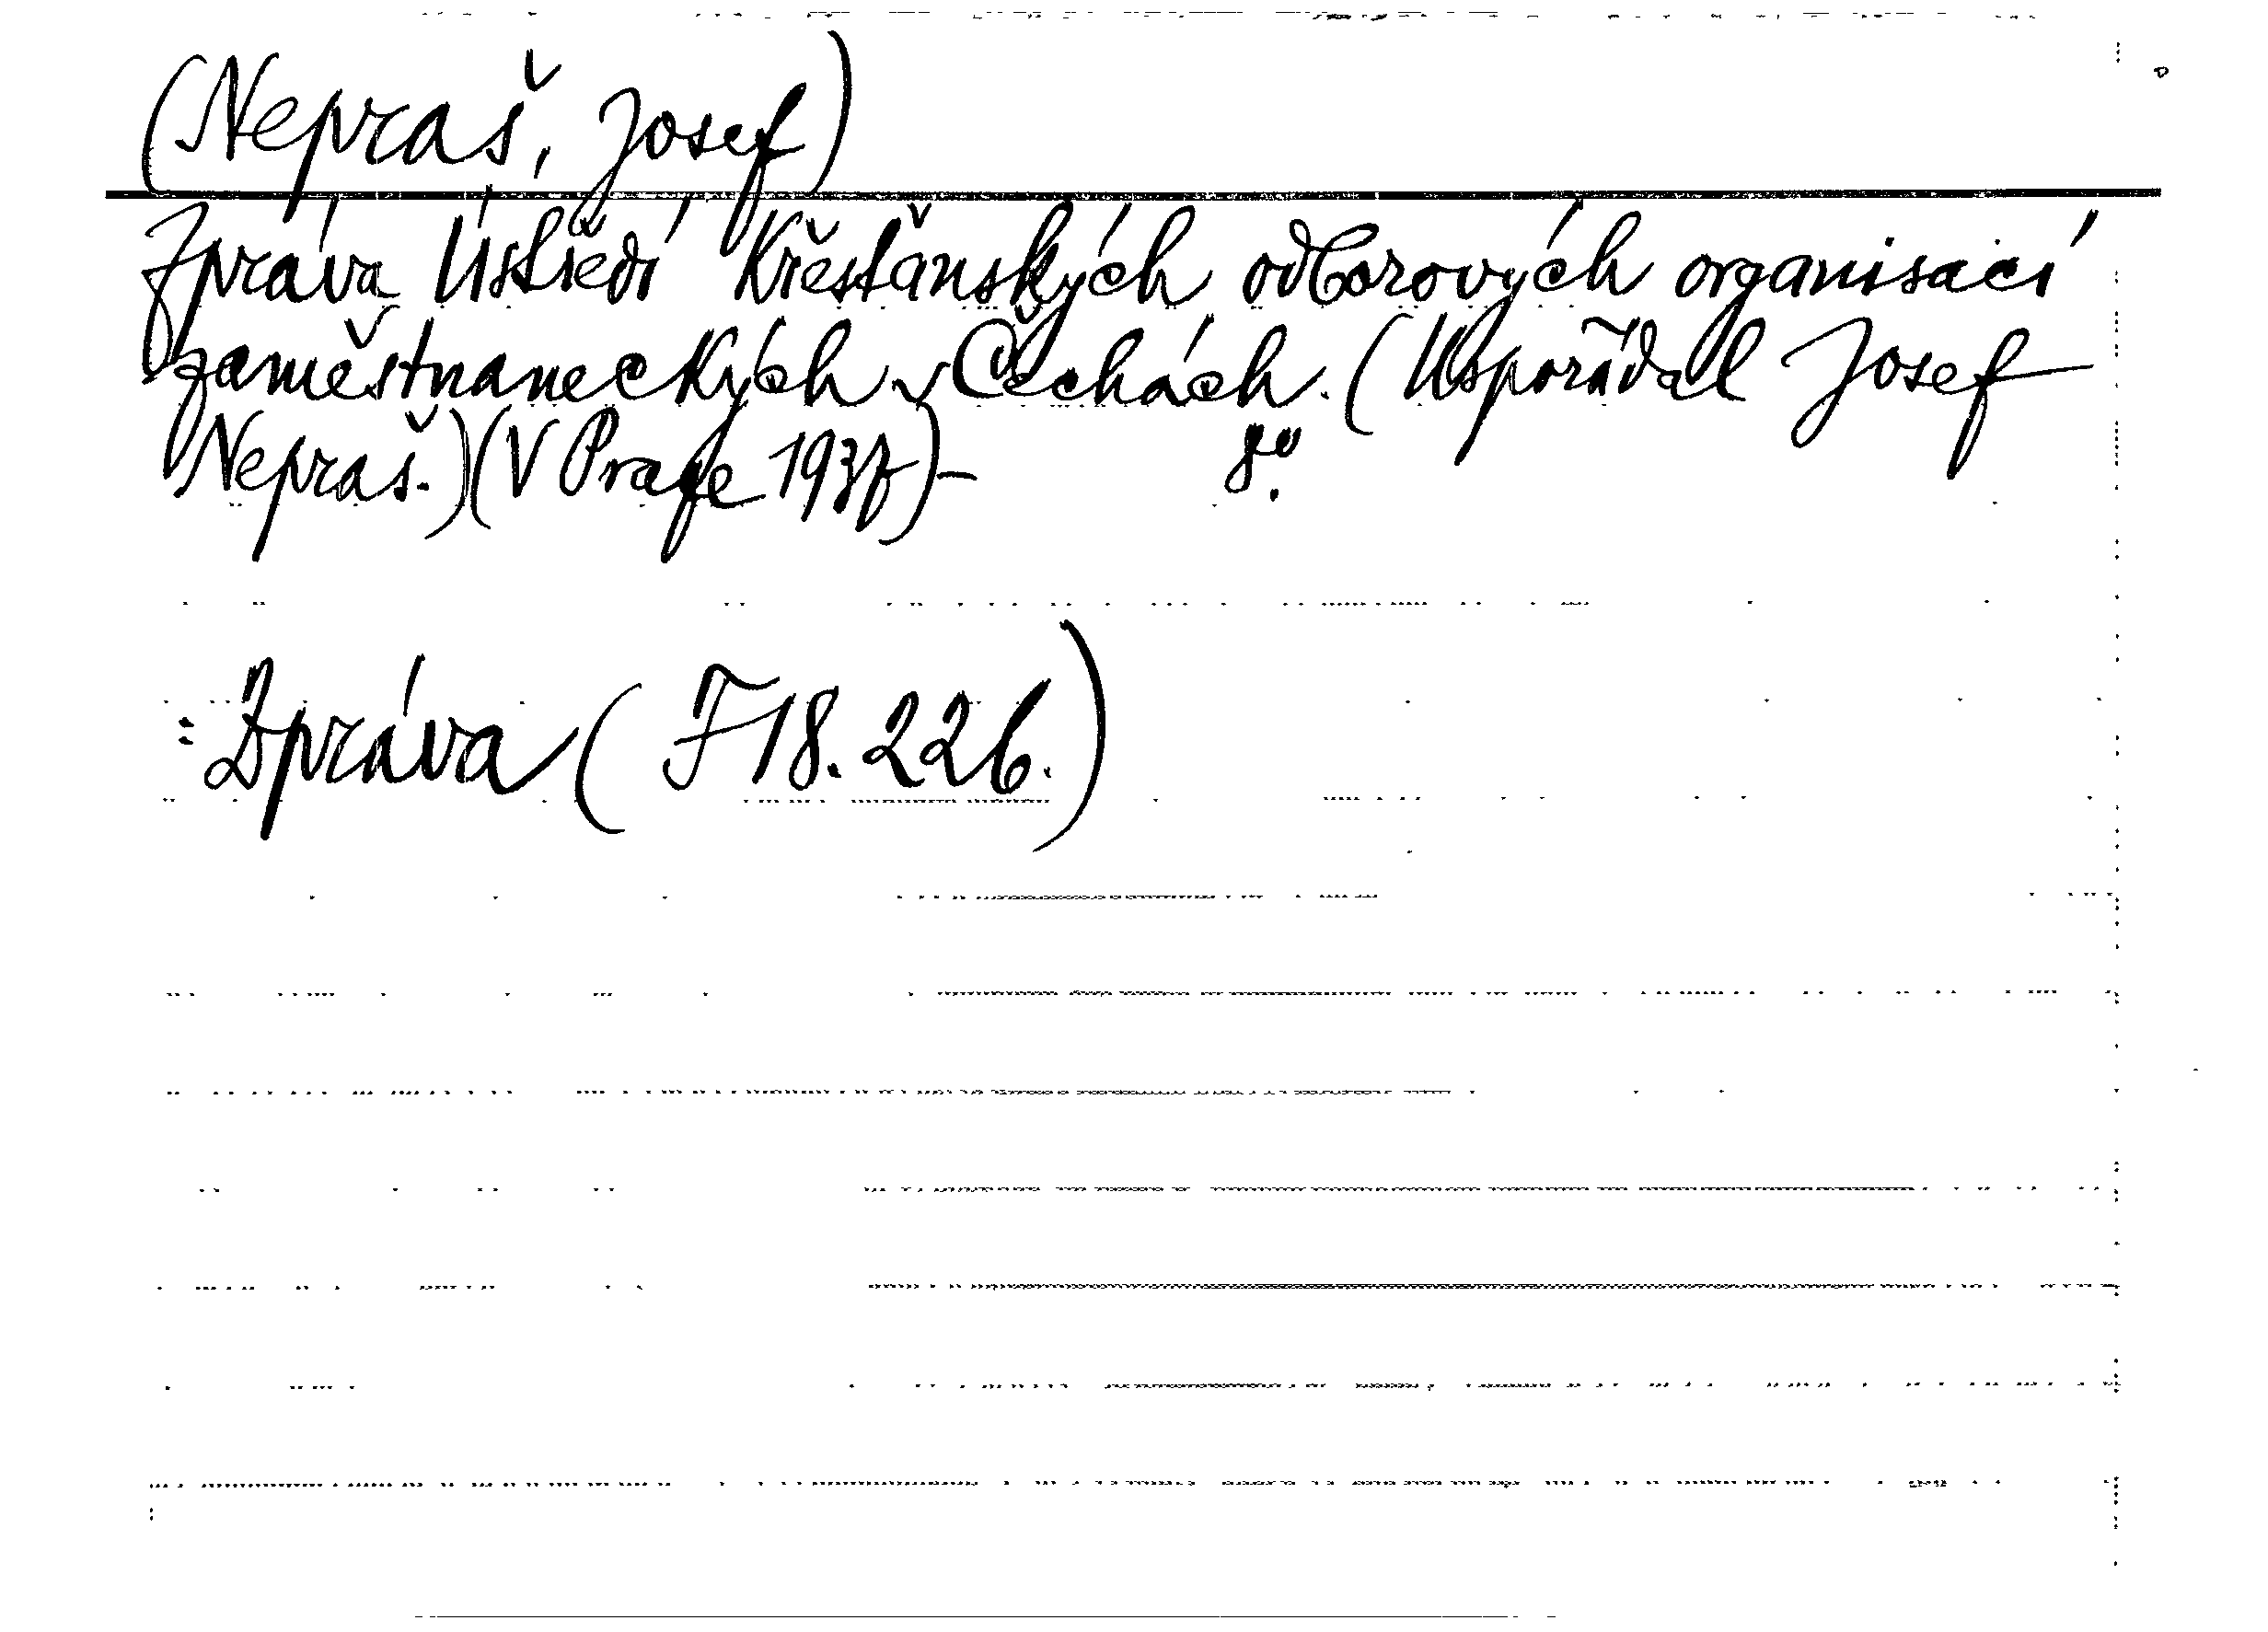 (Nepraš, Josef)
Zpráva Ústředí Křesťanských odborových organisací
zaměstnaneckých v Čechách. (Uspořádal Josef
Nepraš.) (V Praze 1937) - 8°.
: Zpráva ( F 18.226.)